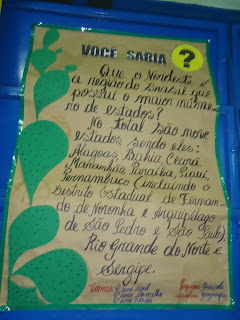 VOCÊ SABIA ?
Que o Nordeste é
a região do Brasil que
possui o maior núme
ro de estados?
No total são nove
estados sendo eles:
Alagoas, Bahia, Ceará
Maranhão, Paraíba, Piauí,
Pernambuco (incluindo o
Distrito Estadual de Fernan
do de Noronha e Arquipélago
de São Pedro e São Paulo),
Rio Grande do Norte e
Sergipe.
Turmas: 6º ano Azul
6º ano Vermelho